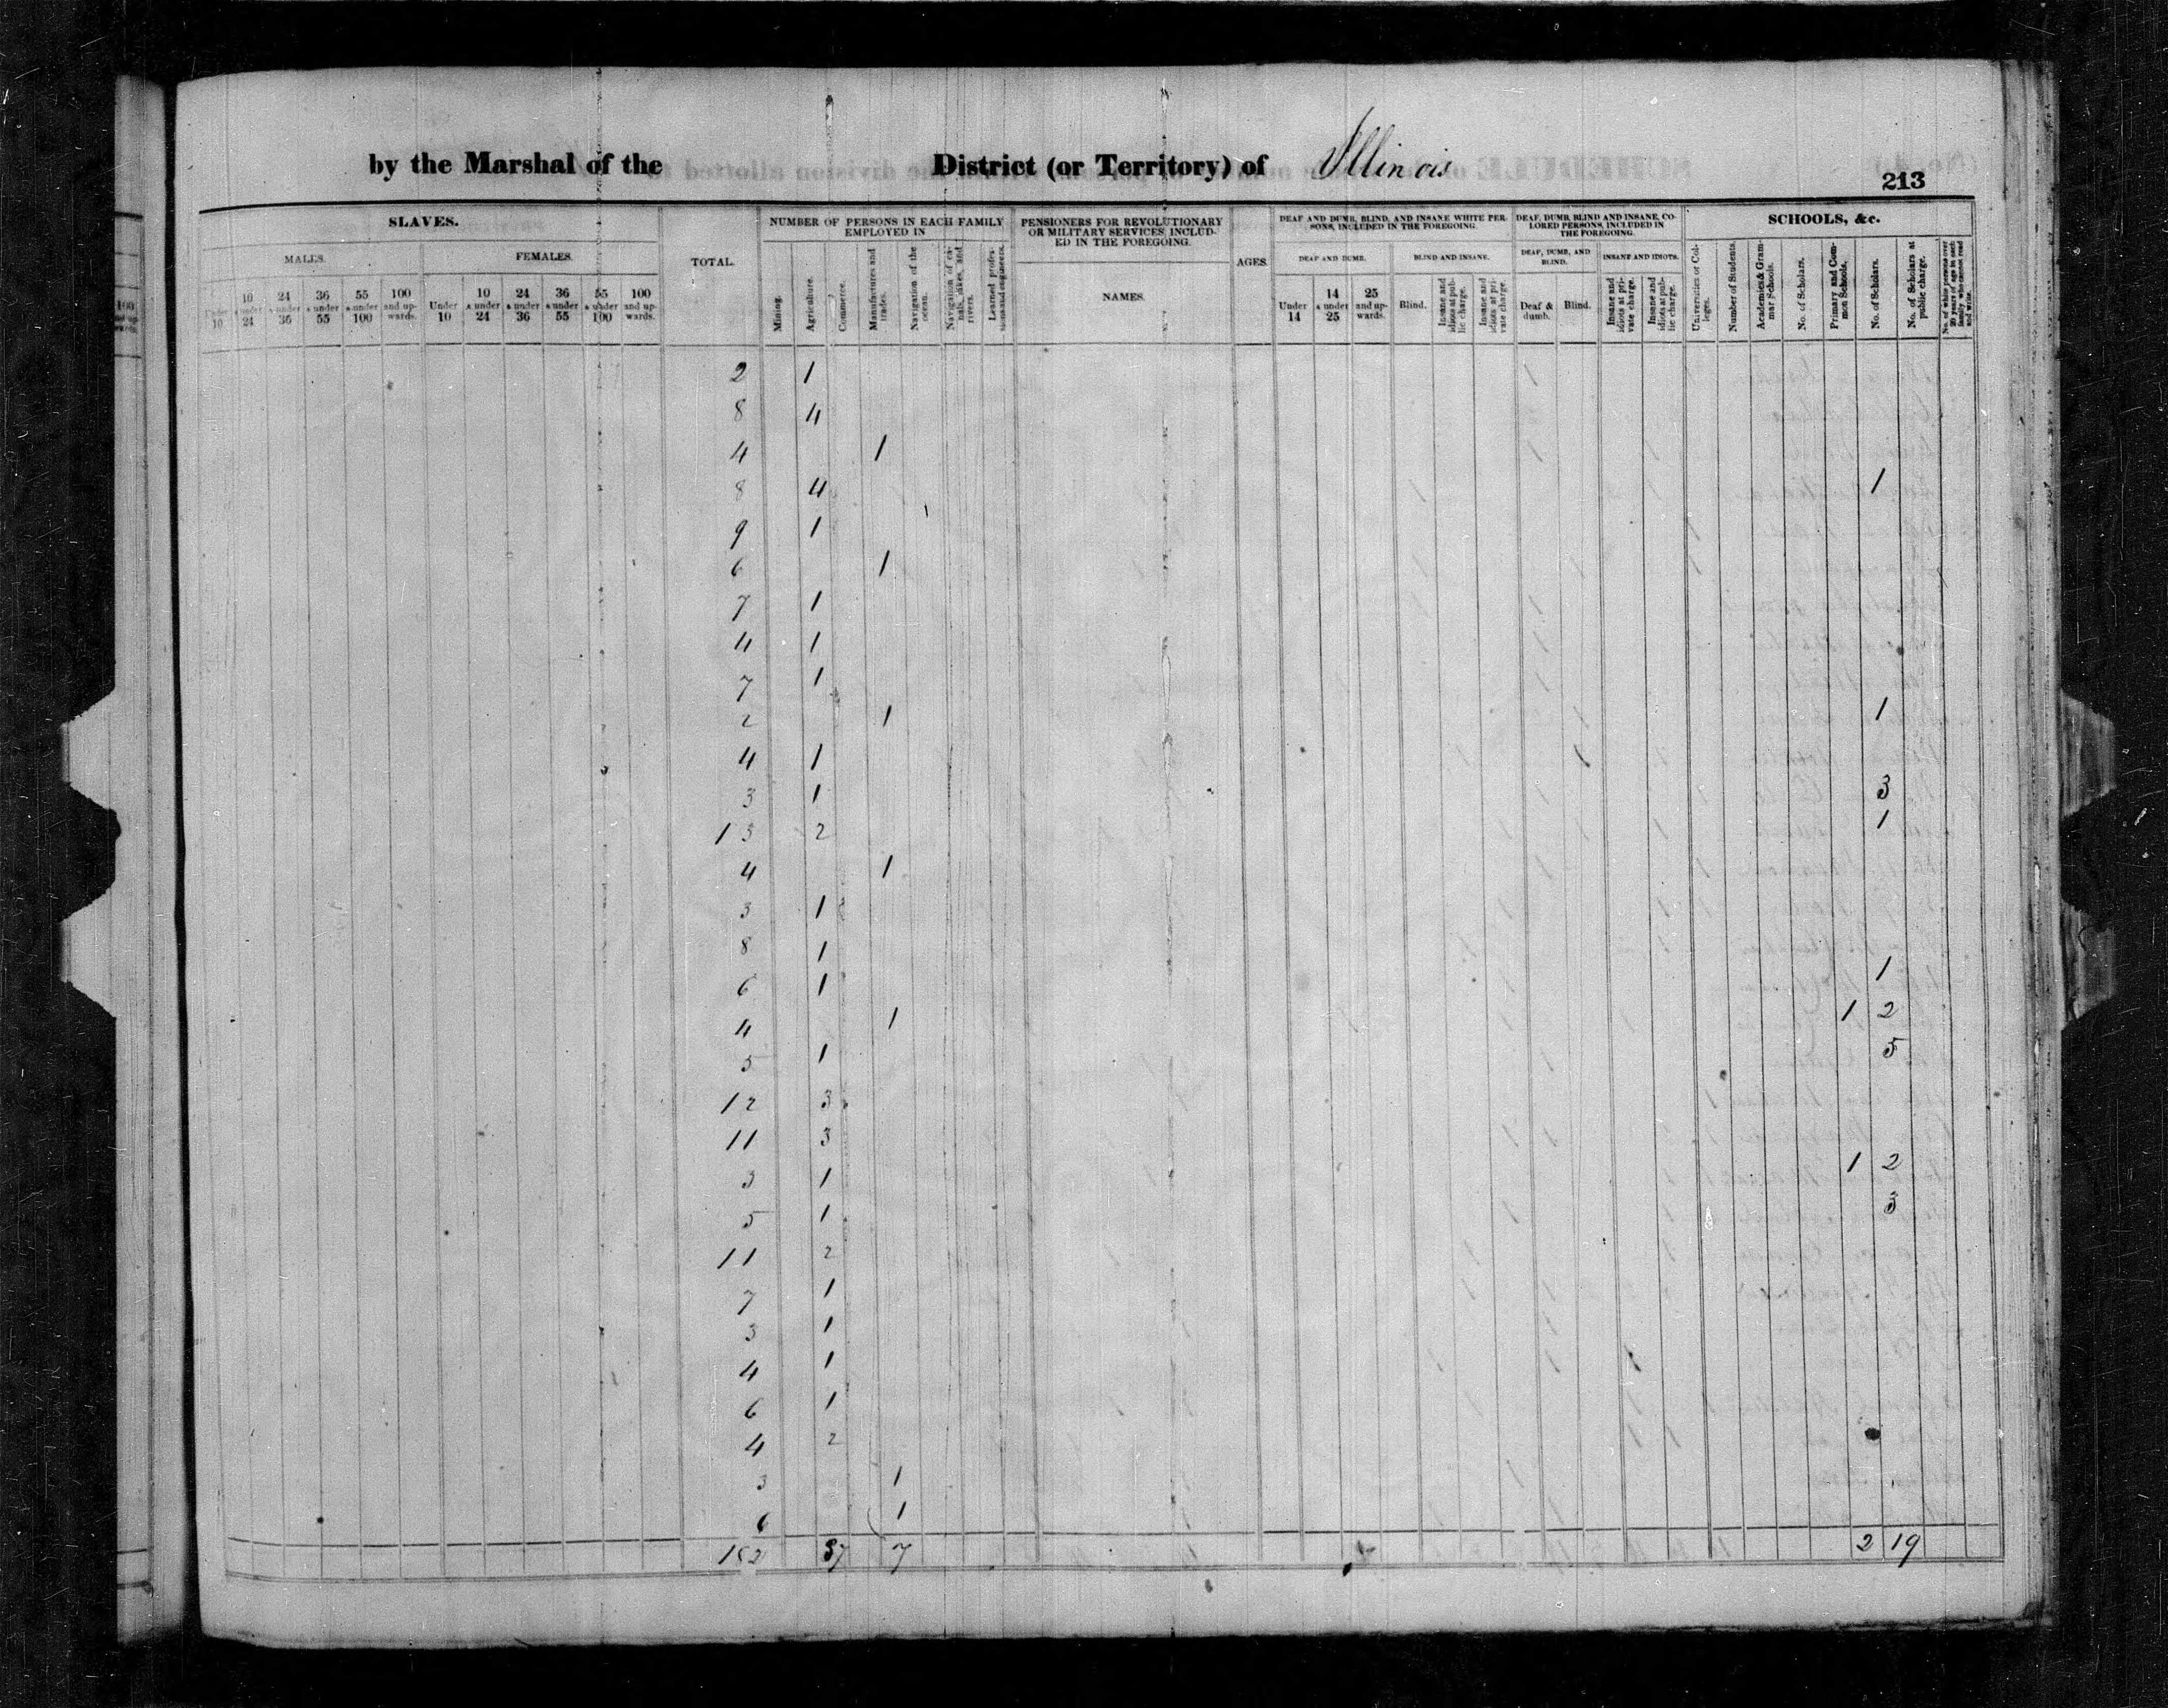 by the Marshal of the District (or Territory) of Illinois
213
SLAVES.
MALES.
FEMALES.
Under 10
10 & under 24
24 & under 36
36 & under 55
55 & under 100
100 and upwards.
Under 10
10 & under 24
24 & under 36
36 & under 55
55 & under 100
100 and upwards.
TOTAL.
NUMBER OF PERSONS IN EACH FAMILY EMPLOYED IN
Mining.
Agriculture.
Commerce.
Manufactures and trades.
Navigation of the ocean.
Navigation of canals, lakes, and rivers.
Learned professions and engineers.
PENSIONERS FOR REVOLUTIONARY OR MILITARY SERVICES, INCLUDED IN THE FOREGOING.
NAMES.
AGES.
DEAF AND DUMB, BLIND, AND INSANE WHITE PERSONS, INCLUDED IN THE FOREGOING.
DEAF AND DUMB.
Under 14
14 & under 25
25 and upwards.
BLIND AND INSANE.
Blind.
Insane and idiots at public charge.
Insane and idiots at private charge.
DEAF, DUMB, BLIND AND INSANE, COLORED PERSONS, INCLUDED IN THE FOREGOING.
DEAF, DUMB, AND BLIND.
Deaf & dumb.
Blind.
INSANE AND IDIOTS.
Insane and idiots at private charge.
Insane and idiots at public charge.
SCHOOLS, &c.
Universities or Colleges.
Number of Students.
Academies & Grammar Schools.
No. of Scholars.
Primary and Common Schools.
No. of Scholars.
No. of Scholars at public charge.
No. of white persons over 20 years of age in each family who cannot read and write.
2 1
8 4
4 1
8 4 1
9 1
6 1
7 1
4 1
7 1
2 1 1
4 1
3 1 3
13 2 1
4 1
3 1
8 1
6 1 1
4 1 1 2
5 1 5
12 3
11 3
3 1 1 2
5 1 3
11 2
7 1
3 1
4 1
6 1
4 2
3 1
6 1
182 37 7 2 19